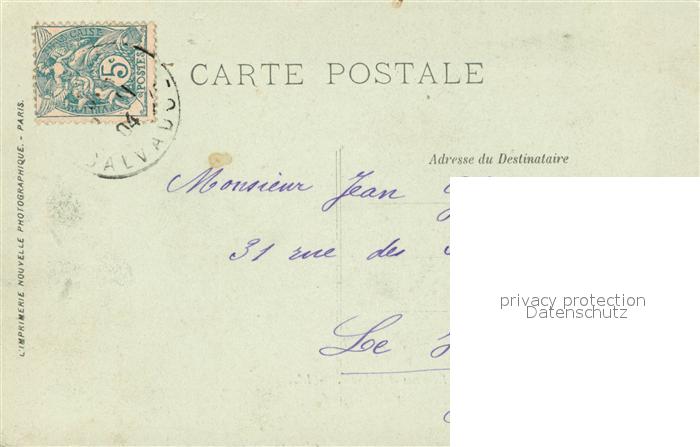 CARTE POSTALE
Adresse du Destinataire
Monsieur Jean
31 rue des
Le
privacy protection
Datenschutz
5c
POSTES
04
CALVADOS
L'IMPRIMERIE NOUVELLE PHOTOGRAPHIQUE. - PARIS.